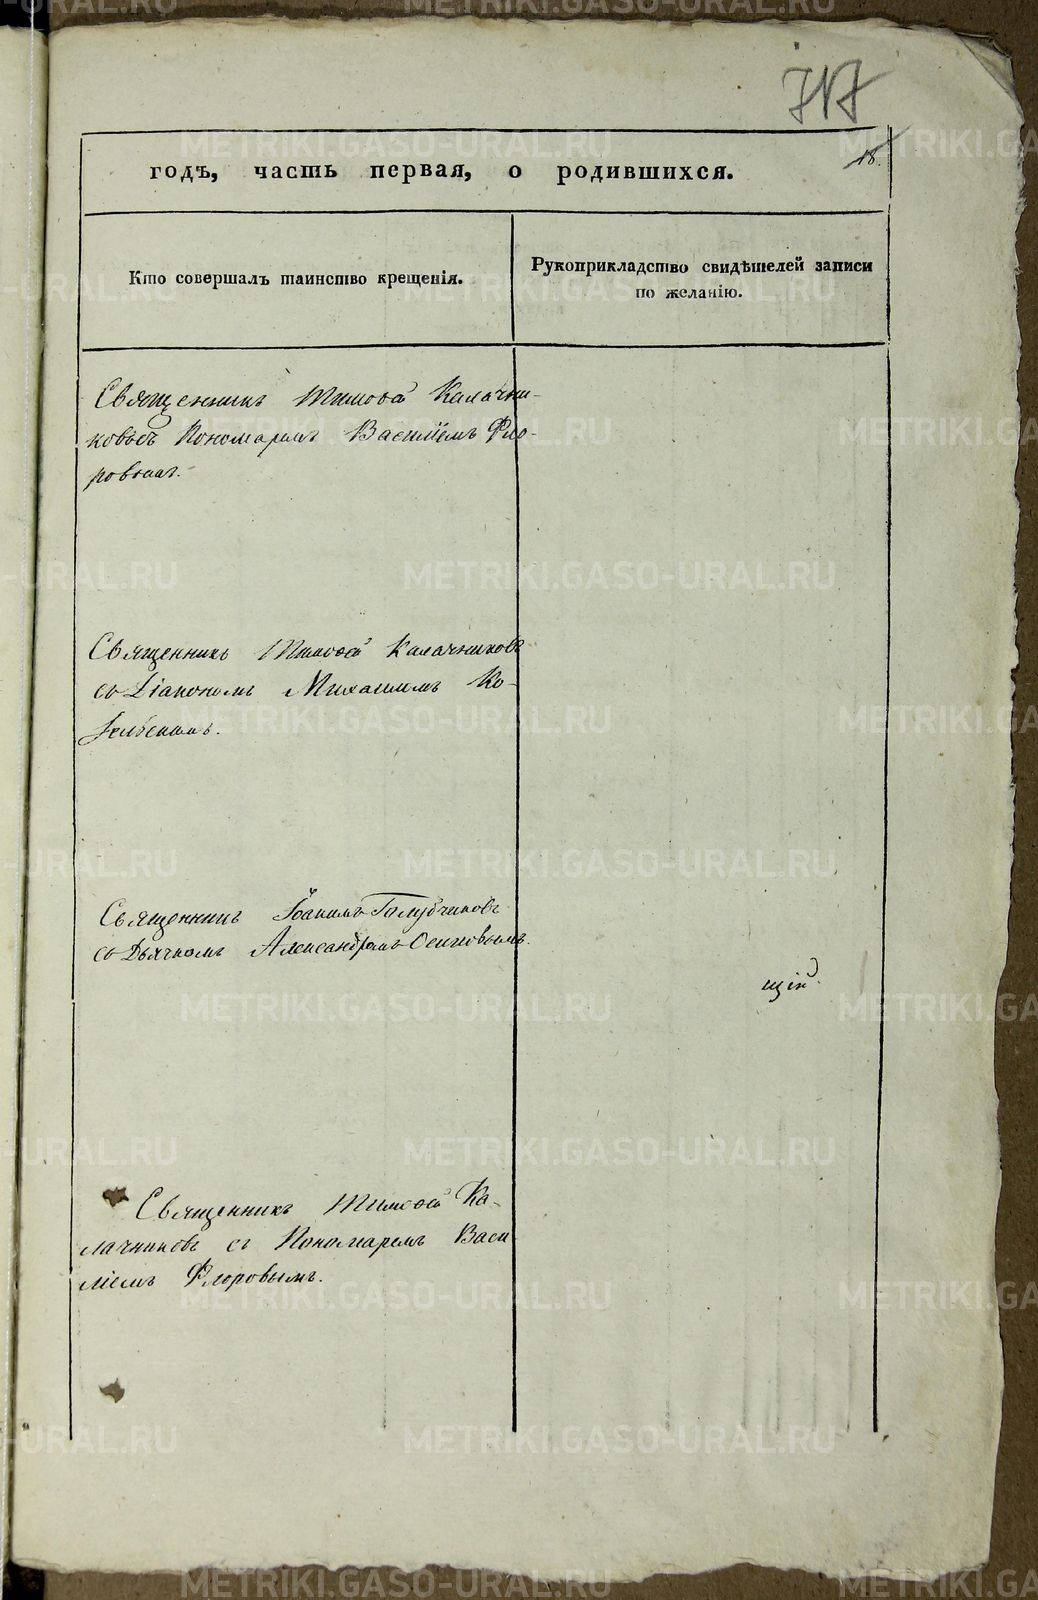 717
18.
годъ, часть первая, о родившихся.
Кто совершалъ таинство крещенія.
Рукоприкладство свидѣтелей записи
по желанію.
Священникъ Тимоѳей Калачни-
ковъ съ Пономаремъ Василіемъ Фло-
ровымъ.
Священникъ Тимоѳей Калачниковъ
съ Діакономъ Михаиломъ Ко-
Священникъ Іоакимъ Голубчиковъ
съ Дьячкомъ Александромъ Осиповымъ.
щій.
Священникъ Тимоѳей Ка-
лачниковъ съ Пономаремъ Васи-
ліемъ Флоровымъ.
METRIKI.GASO-URAL.RU